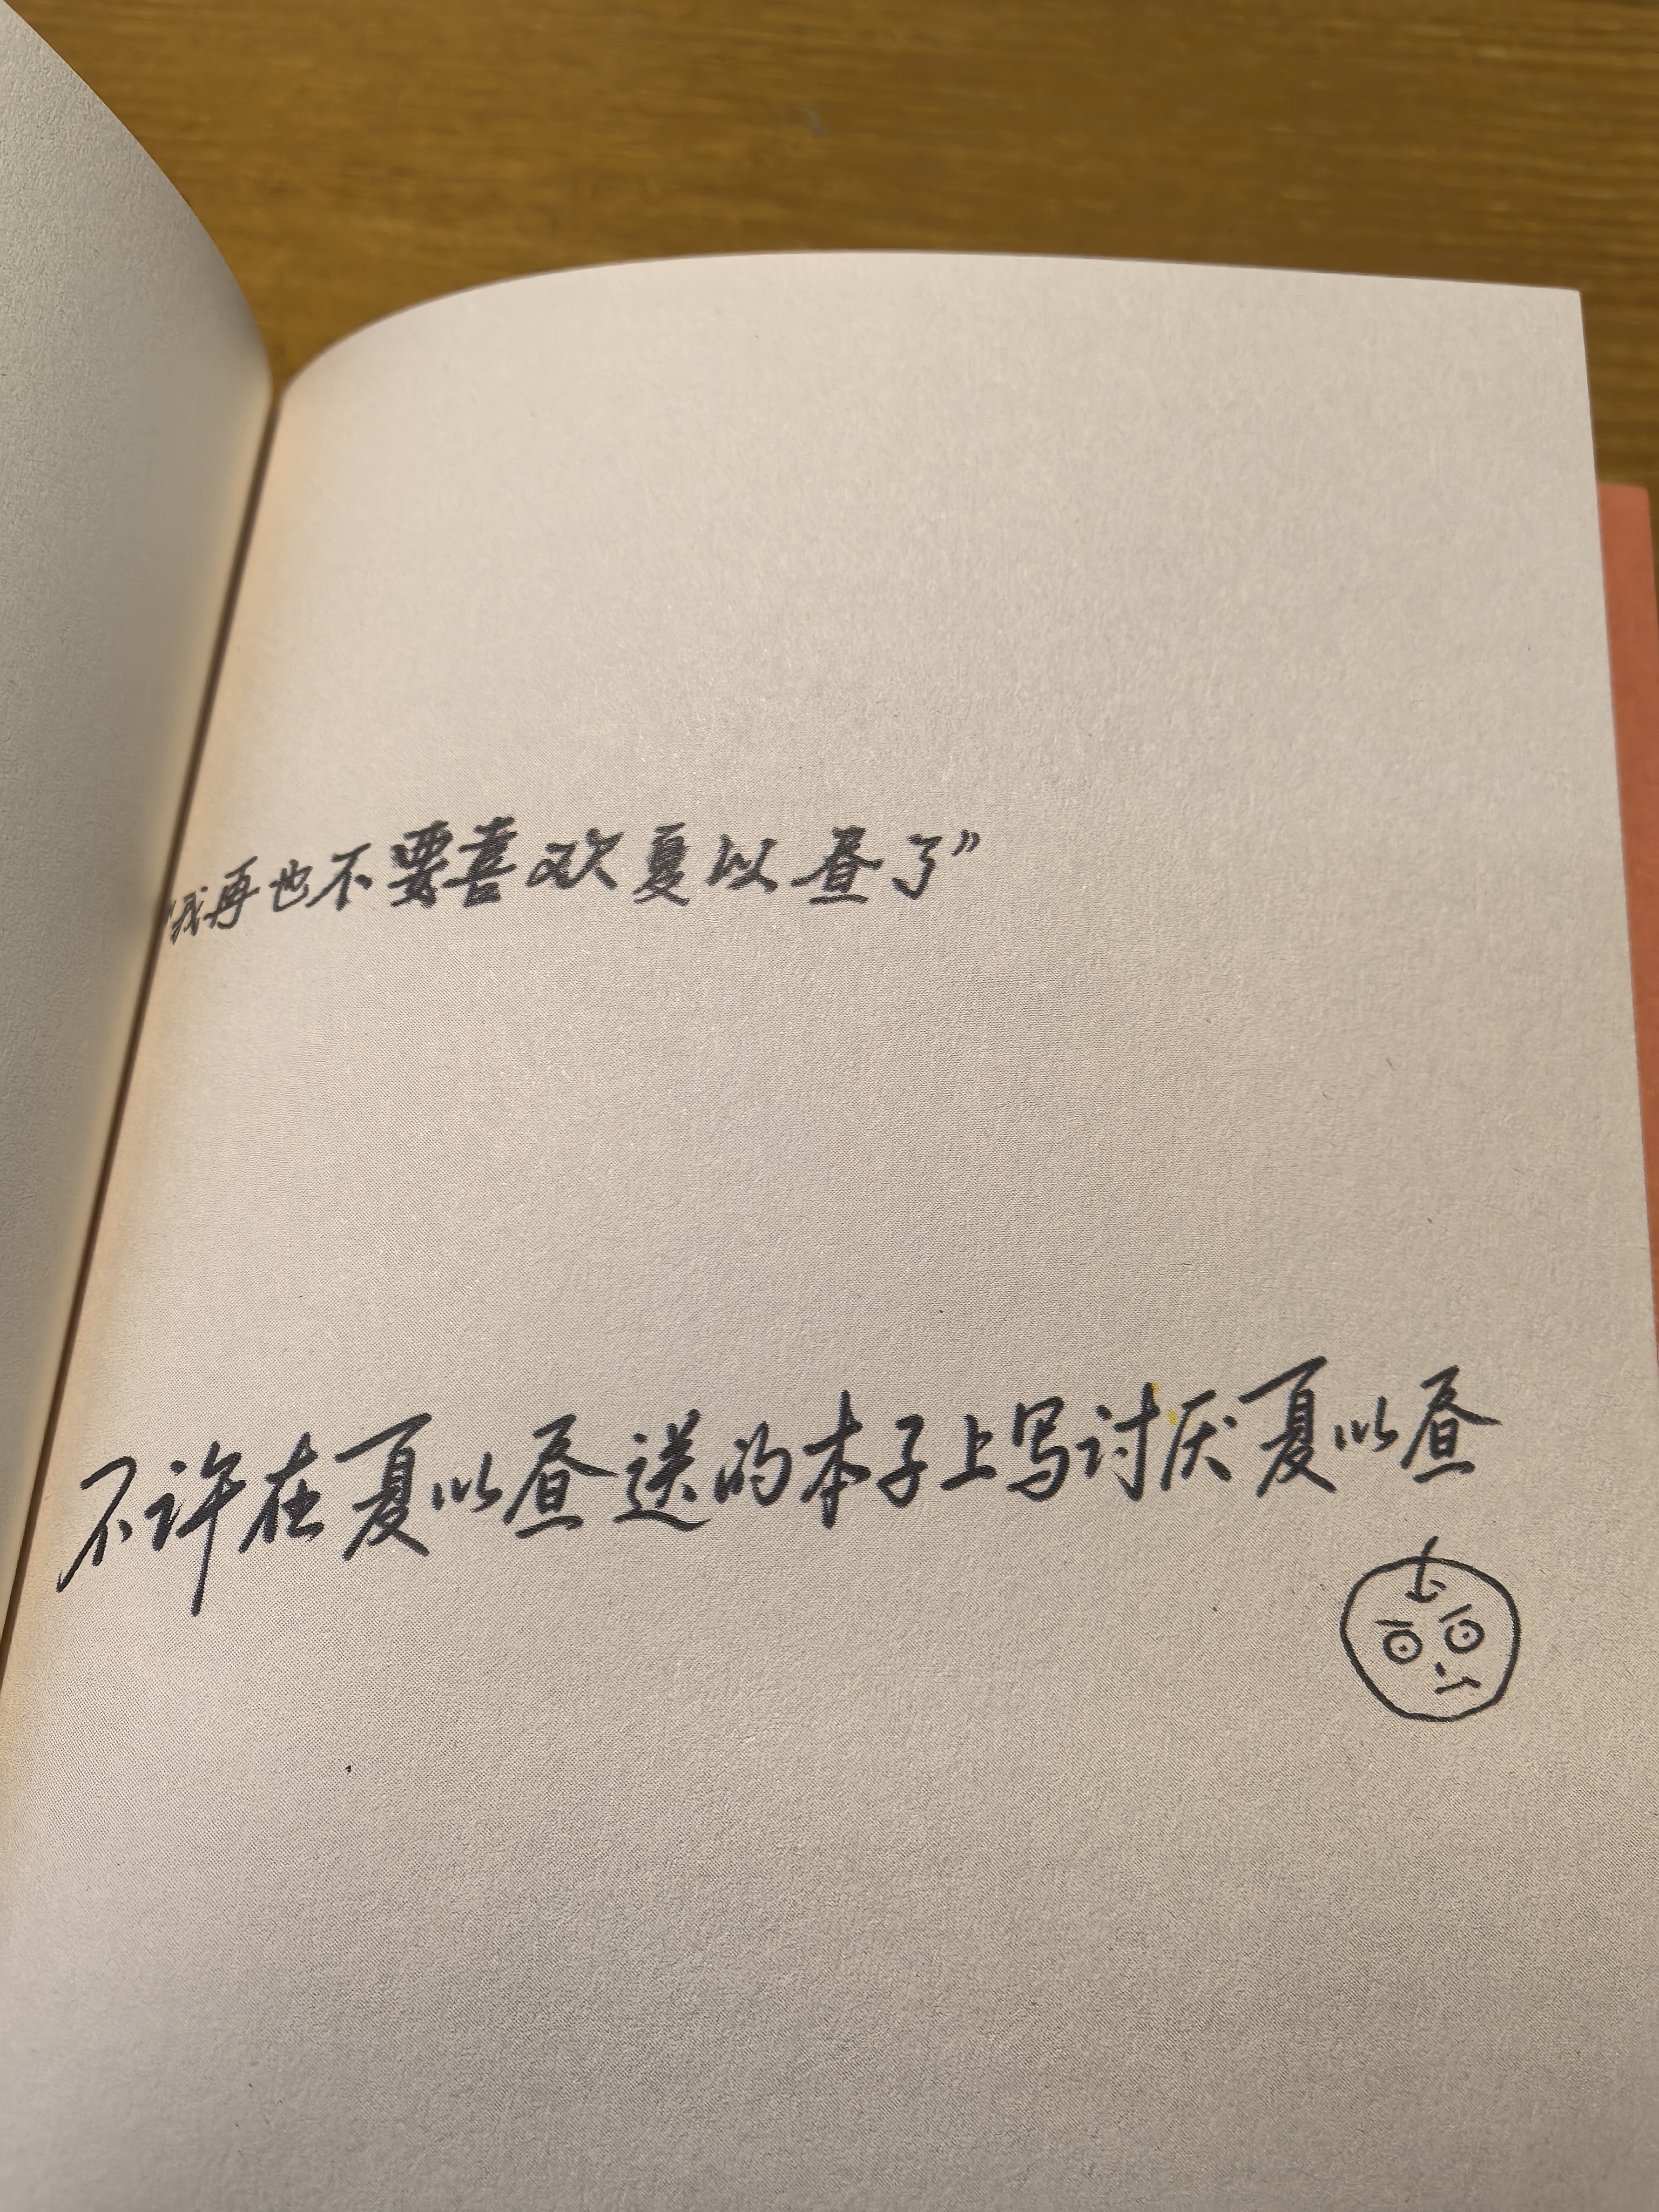 “我再也不要喜欢夏以昼了”
不许在夏以昼送的本子上写讨厌夏以昼